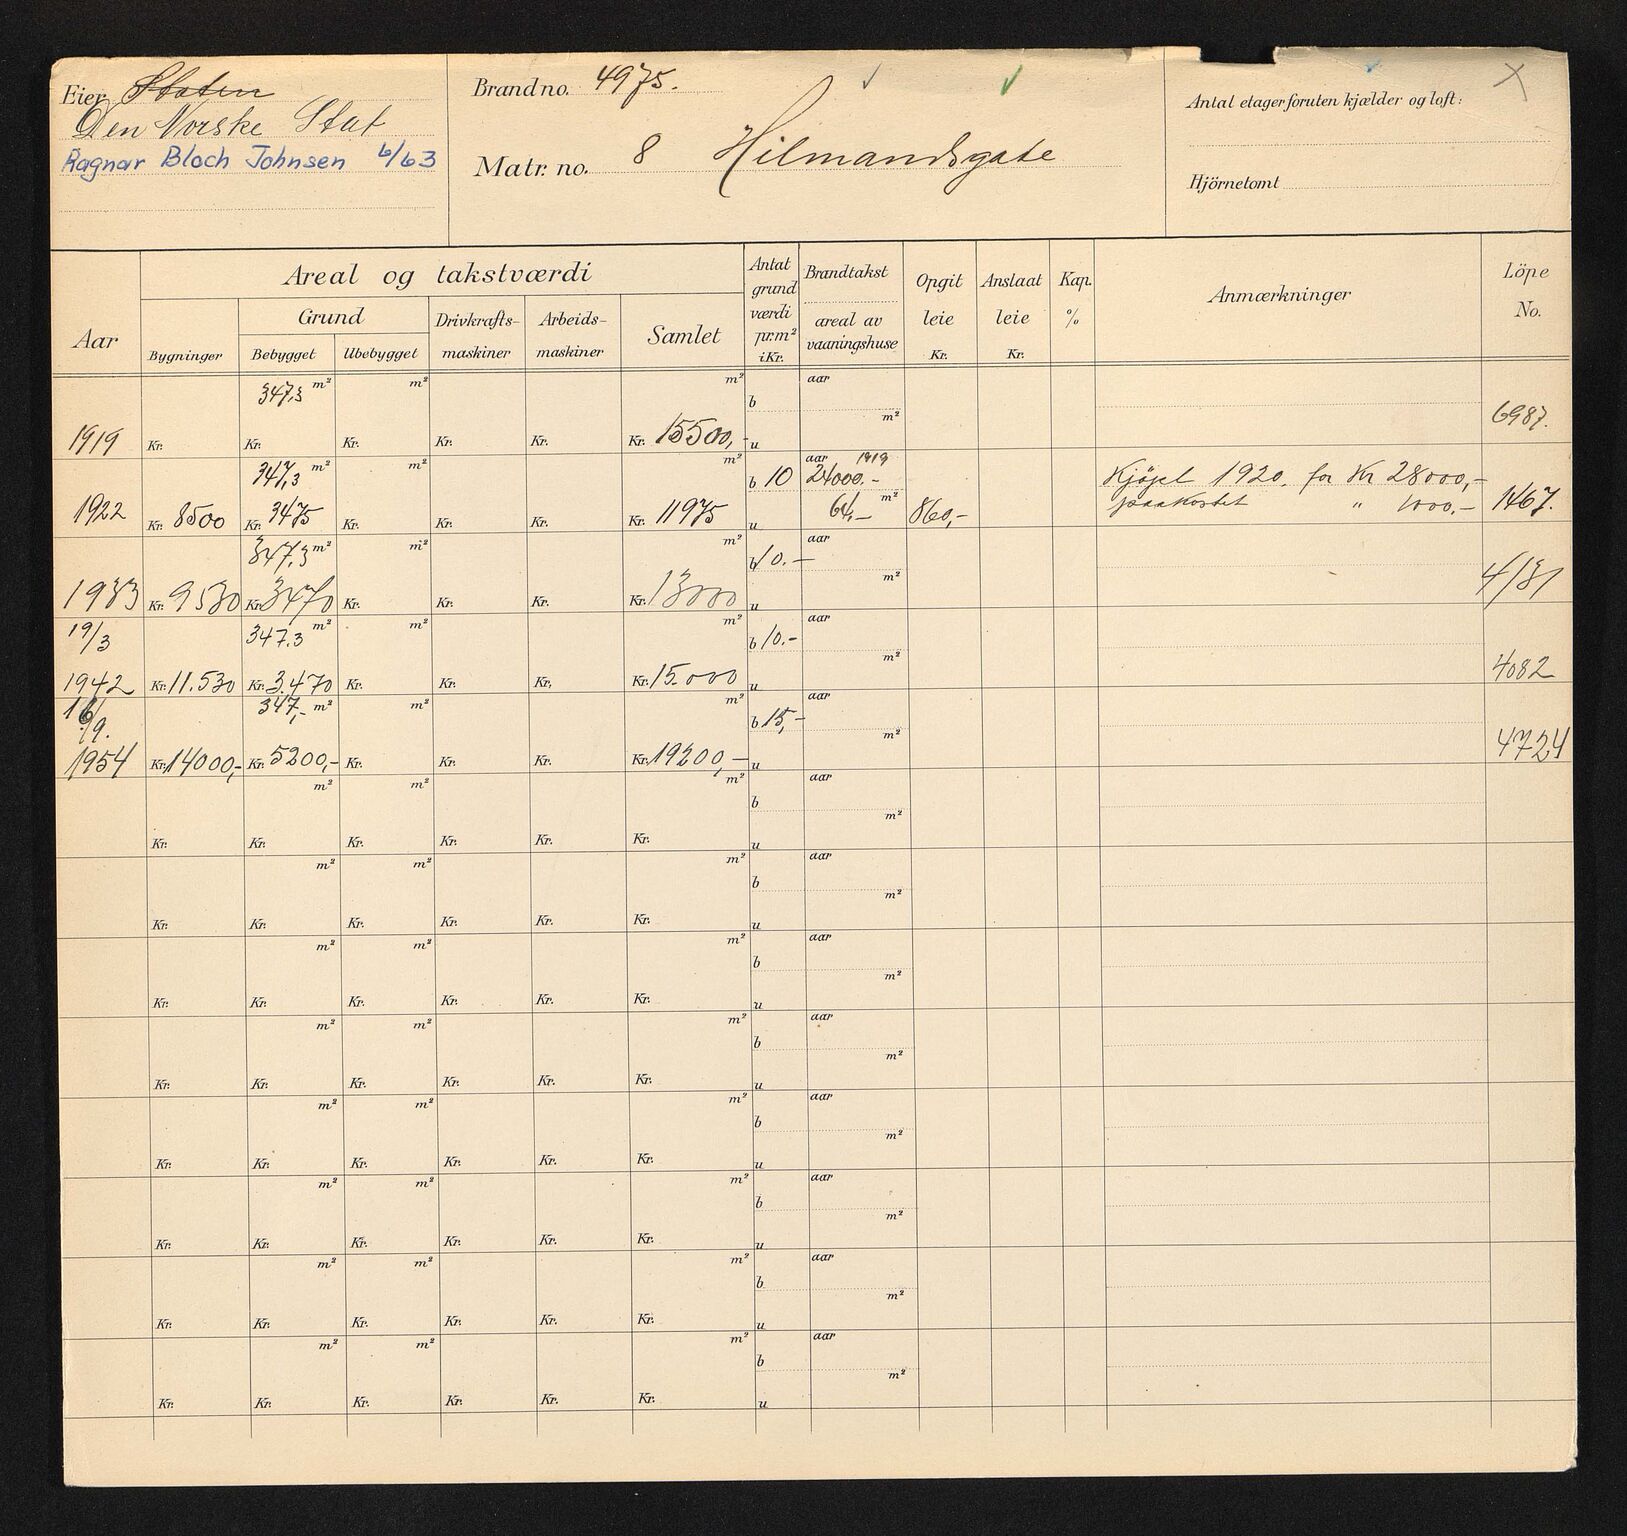 Eier Staten
Den Norske Stat
Ragnar Bloch Johnsen 6/63
Brand no. 4975.
Matr. no. 8 Hilmandsgate
Antal etager foruten kjælder og loft:
Hjörnetomt
Aar
Areal og takstværdi
Bygninger
Grund
Bebygget Ubebygget
Drivkrafts-
maskiner
Arbeids-
maskiner
Samlet
Antat
grund
værdi
pr. m²
i Kr.
Brandtakst
areal av
vaaningshuse
Opgit
leie
Kr.
Anslaat
leie
Kr.
Kap.
%
Anmærkninger
Löpe
No.
347,3 m² m² m² b aar
m²
1919 Kr. Kr. Kr. Kr. Kr. Kr. 15500,- u 6987.
347,3 m² m² m² b 10 aar 1919
24000.- Kjöpt 1920 for Kr 28000,-
1922 Kr. 8500 Kr. 3475 Kr. Kr. Kr. Kr. 11975 u 64,- m² 860,- paakostet " 1000,- 1467.
347,3 m² m² m² b 10.- aar
m²
1933 Kr. 9530 Kr. 3470 Kr. Kr. Kr. Kr. 13000 u 4/31
19/3 347.3 m² m² m² b 10.- aar
m²
1942 Kr. 11.530 Kr. 3.470 Kr. Kr. Kr. Kr. 15.000 u 4082
16/9. 347,- m² m² m² b 15,- aar
m²
1954 Kr. 14000,- Kr. 5200,- Kr. Kr. Kr. Kr. 19200,- u 4724
m² m² m² b aar
m²
Kr. Kr. Kr. Kr. Kr. Kr. u
m² m² m² b aar
m²
Kr. Kr. Kr. Kr. Kr. Kr. u
m² m² m² b aar
m²
Kr. Kr. Kr. Kr. Kr. Kr. u
m² m² m² b aar
m²
Kr. Kr. Kr. Kr. Kr. Kr. u
m² m² m² b aar
m²
Kr. Kr. Kr. Kr. Kr. Kr. u
m² m² m² b aar
m²
Kr. Kr. Kr. Kr. Kr. Kr. u
m² m² m² b aar
m²
Kr. Kr. Kr. Kr. Kr. Kr. u
m² m² m² b aar
m²
Kr. Kr. Kr. Kr. Kr. Kr. u